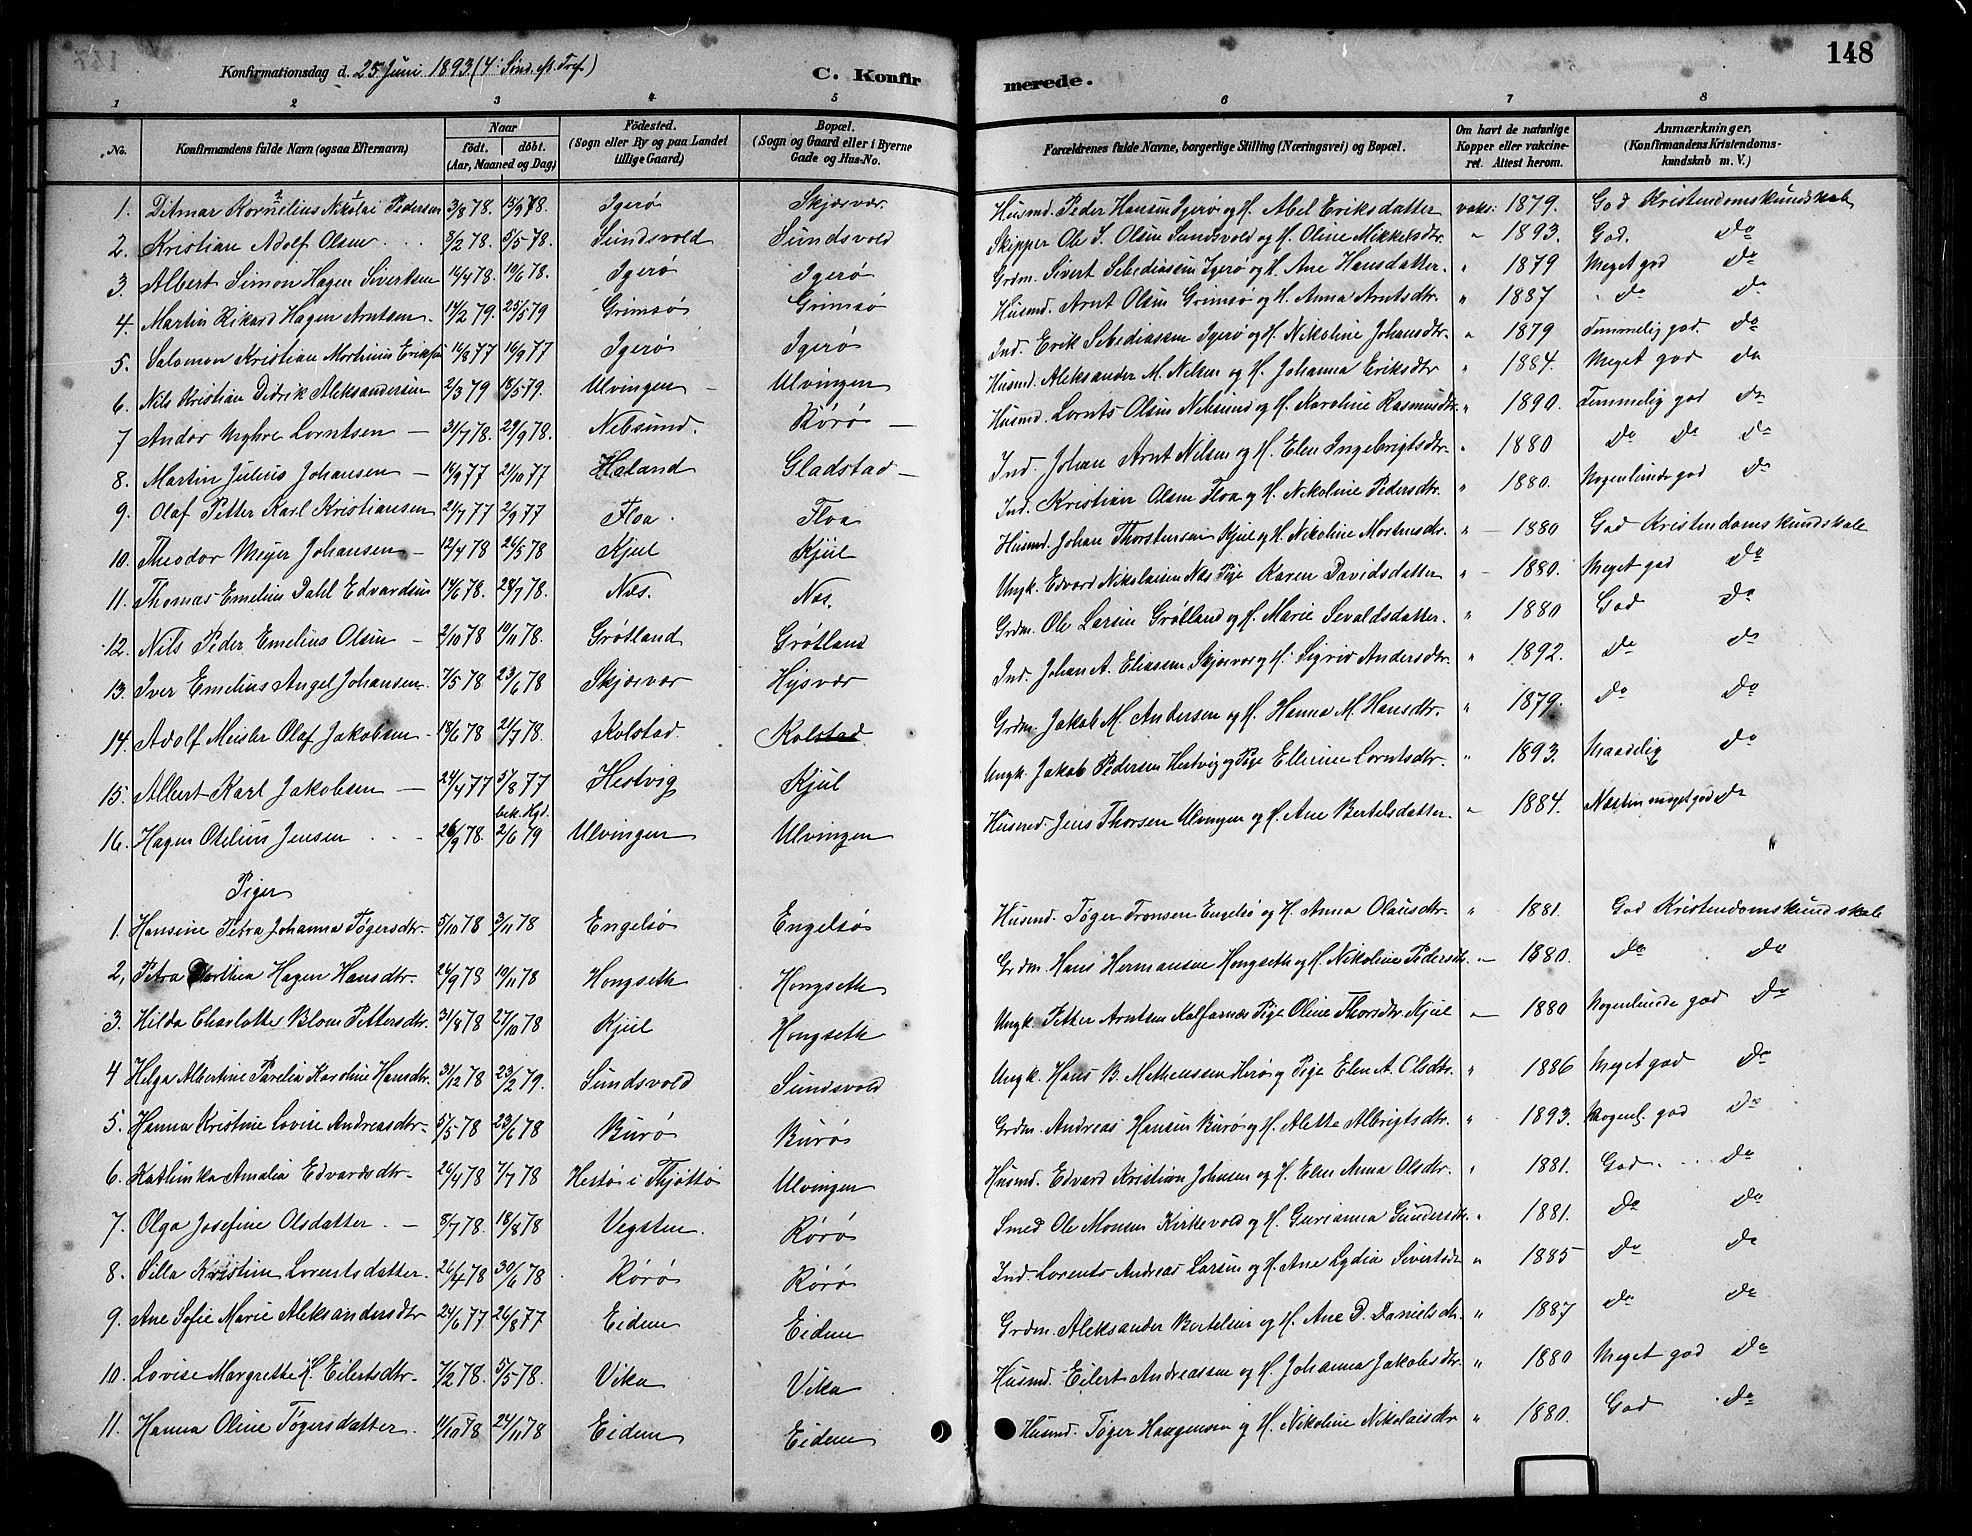 148
Konfirmationsdag d. 25. Juni 1893 (4. Sønd. eft. Tref.)
C. Konfir merede.
1 2 3 4 5 6 7 8
No. Konfirmandens fulde Navn (ogsaa Efternavn) Naar født. døbt. (Aar, Maaned og Dag) Födested. (Sogn eller By og paa Landet tillige Gaard) Bopæl. (Sogn og Gaard eller i Byerne Gade og Hus-No. Forældrenes fulde Navne, borgerlige Stilling (Næringsvei) og Bopæl. Om havt de naturlige Kopper eller vakcineret. Attest herom. Anmærkninger. (Konfirmandens Kristendomskundskab m. V.)
1. Ditmar Kornelius Nikolai Pedersen 3/8 78. 15/9 78. Igerø Skjærvær Husmd. Peder Hansen Igerø og H. Abel Eriksdatter vaks: 1879. God Kristendomskundskab
2. Kristian Adolf Olsen 8/2 78. 5/5 78. Sundsvold Sundsvold Skipper Ole S. Olsen Sundsvold og H. Oline Mikkelsdtr. " 1893. God. do
3. Albert Simon Hagen Sivertsen 16/4 78. 10/6 78. Igerø Igerø Grdm. Sivert Sebediassen Igerø og H. Ane Hansdatter. " 1879 Meget god do
4. Martin Rikard Hagen Arntsen. 14/2 79. 25/5 79 Grimsø Grimsø Husmd. Arnt Olsen Grimsø og H. Anna Arntsdtr. " 1887 do do
5. Salomon Kristian Mortinus Eriksen 16/8 77 16/9 77 Igerø Igerø Ind. Erik Sebediassen Igerø og H. Nikoline Johansdtr. " 1879 Temmelig god. do
6. Nils Kristian Didrik Aleksandersen 2/3 79 18/5 79. Ulvingen Ulvingen Husmd. Aleksander M. Nelsen og H. Johanna Eriksdtr " 1884. Meget god do
7 Andor Myhre Lorntsen 31/7 78. 29/9 78. Nebsund. Rørø Husmd. Lornts Olsen Nebsund og H. Karoline Rasmusdtr. " 1890. Temmelig god do
8. Martin Julius Johansen 14/9 77 21/10 77 Haland Gladstad Ind. Johan Arnt Nelsen og H. Elen Ingebrigtsdtr. " 1880 do do do
9. Olaf Petter Karl Kristiansen 21/7 77 2/9 77 Floa. Floa Ind. Kristian Olsen Floa og H. Nikoline Pedersdtr. " 1880. Nogenlunde god do
10. Theodor Meyer Johansen 12/4 78 26/5 78 Kjul Kjul Husmd. Johan Thorstensen Kjul og H. Nikoline Mortensdtr. " 1880 God Kristendomskundskab
11. Thomas Emelius Dahl Edvardsen 14/6 78. 28/7 78. Næs. Næs. Ungk. Edvard Nikolaisen Næs Pige Karen Davidsdatter " 1880. Meget god do
12. Nils Peder Emelius Olsen 2/10 78 10/11 78. Grøtland Grøtland Grdm. Ole Larsen Grøtland og H. Marie Sevaldsdatter. " 1880 God do
13. Iver Emelius Angel Johansen. 7/5 78 23/6 78 Skjærvær Hysvær Ind. Johan A. Eliassen Skjærvær og H. Sigrid Andersdtr. " 1892. do do
14. Adolf Meisler Olaf Jakobsen 18/6 78 21/7 78. Kolstad. Kolstad Grdm. Jakob M. Andersen og H. Hanna M. Hansdtr. " 1879. do do
15. Albert Karl Jakobsen 24/4 77 5/8 77 Hestvig Kjul Ungk. Jakob Pedersen Hestvig og Pige Ellerine Lorntsdtr. " 1893. Maadelig do
bek. Kgd.
16. Hagen Otelius Jensen 26/9 78. 2/6 79 Ulvingen Ulvingen Husmd. Jens Thorsen Ulvingen og H. Ane Bertelsdatter. " 1884. Næsten meget god do
Piger
1. Hansine Petra Johanna Tøgersdtr. 5/10 78 3/11 78 Engelsø Engelsø Husmd. Tøger Tronsen Engelsø og H. Anna Olausdtr. " 1881. God Kristendomskundskab
2, Petra Dorthea Hagen Hansdtr. 26/9 78 10/11 78 Hongseth Hongseth Grdm. Hans Hermansen Hongseth og H. Nikoline Pedersdtr. 1880. do do
3. Hilda Charlotte Blom Pettersdtr. 31/8 78 27/10 78 Kjul Hongseth Ungk. Petter Arntsen Kalfarnæs Pige Oline Thorsdtr. Kjul 1880 Nogenlunde god do
4 Helga Albertine Parelia Karoline Hansdtr. 31/12 78 23/2 79. Sundsvold Sundsvold Ungk. Hans B. Matheussen Herø og Pige Elen A. Olsdtr. " 1886 Meget god do
5. Hanna Kristine Lovise Andreasdtr. 5/5 78 23/6 78 Burø Burø Grdm. Andreas Hansen Burø og H. Alette Albrigtsdtr. " 1893. Nogenl. god do
6. Kathinka Amalia Edvardsdtr. 26/4 78 7/7 78 Hestø i Thjøttø Ulvingen Husmd. Edvard Kristian Johnsen og H. Elen Anna Olsdtr. " 1881. God. do
7. Olga Josefine Olsdatter. 8/7 78. 18/8 78 Vegsten. Rørø Smed Ole Monsen Kirkevold og H. Gurianna Gundersdtr. " 1881. do do
8. Silla Kristine Lorentsdatter. 26/4 78 30/6 78 Rørø Rørø Ind. Lorents Andreas Larsen og H. Ane Lydia Sivertsdtr " 1885 do do
9. Ane Sofie Marie Aleksandersdtr 24/6 77 26/8 77 Eidem Eidem Grdm. Aleksander Bertelsen og H. Ane D. Danielsdtr. " 1887 do do
10. Lovise Margrethe H. Eilertsdtr. 7/2 78. 5/5 78. Vika Vika Husmd. Eilert Andreassen og H. Johanna Jakobsdtr. " 1880 Meget god do
11. Hanna Oline Tøgersdatter. 11/10 78 24/11 78 Eidem Eidem Husmd. Tøger Haagensen og H. Nikoline Nikolaisdtr " 1880. God do